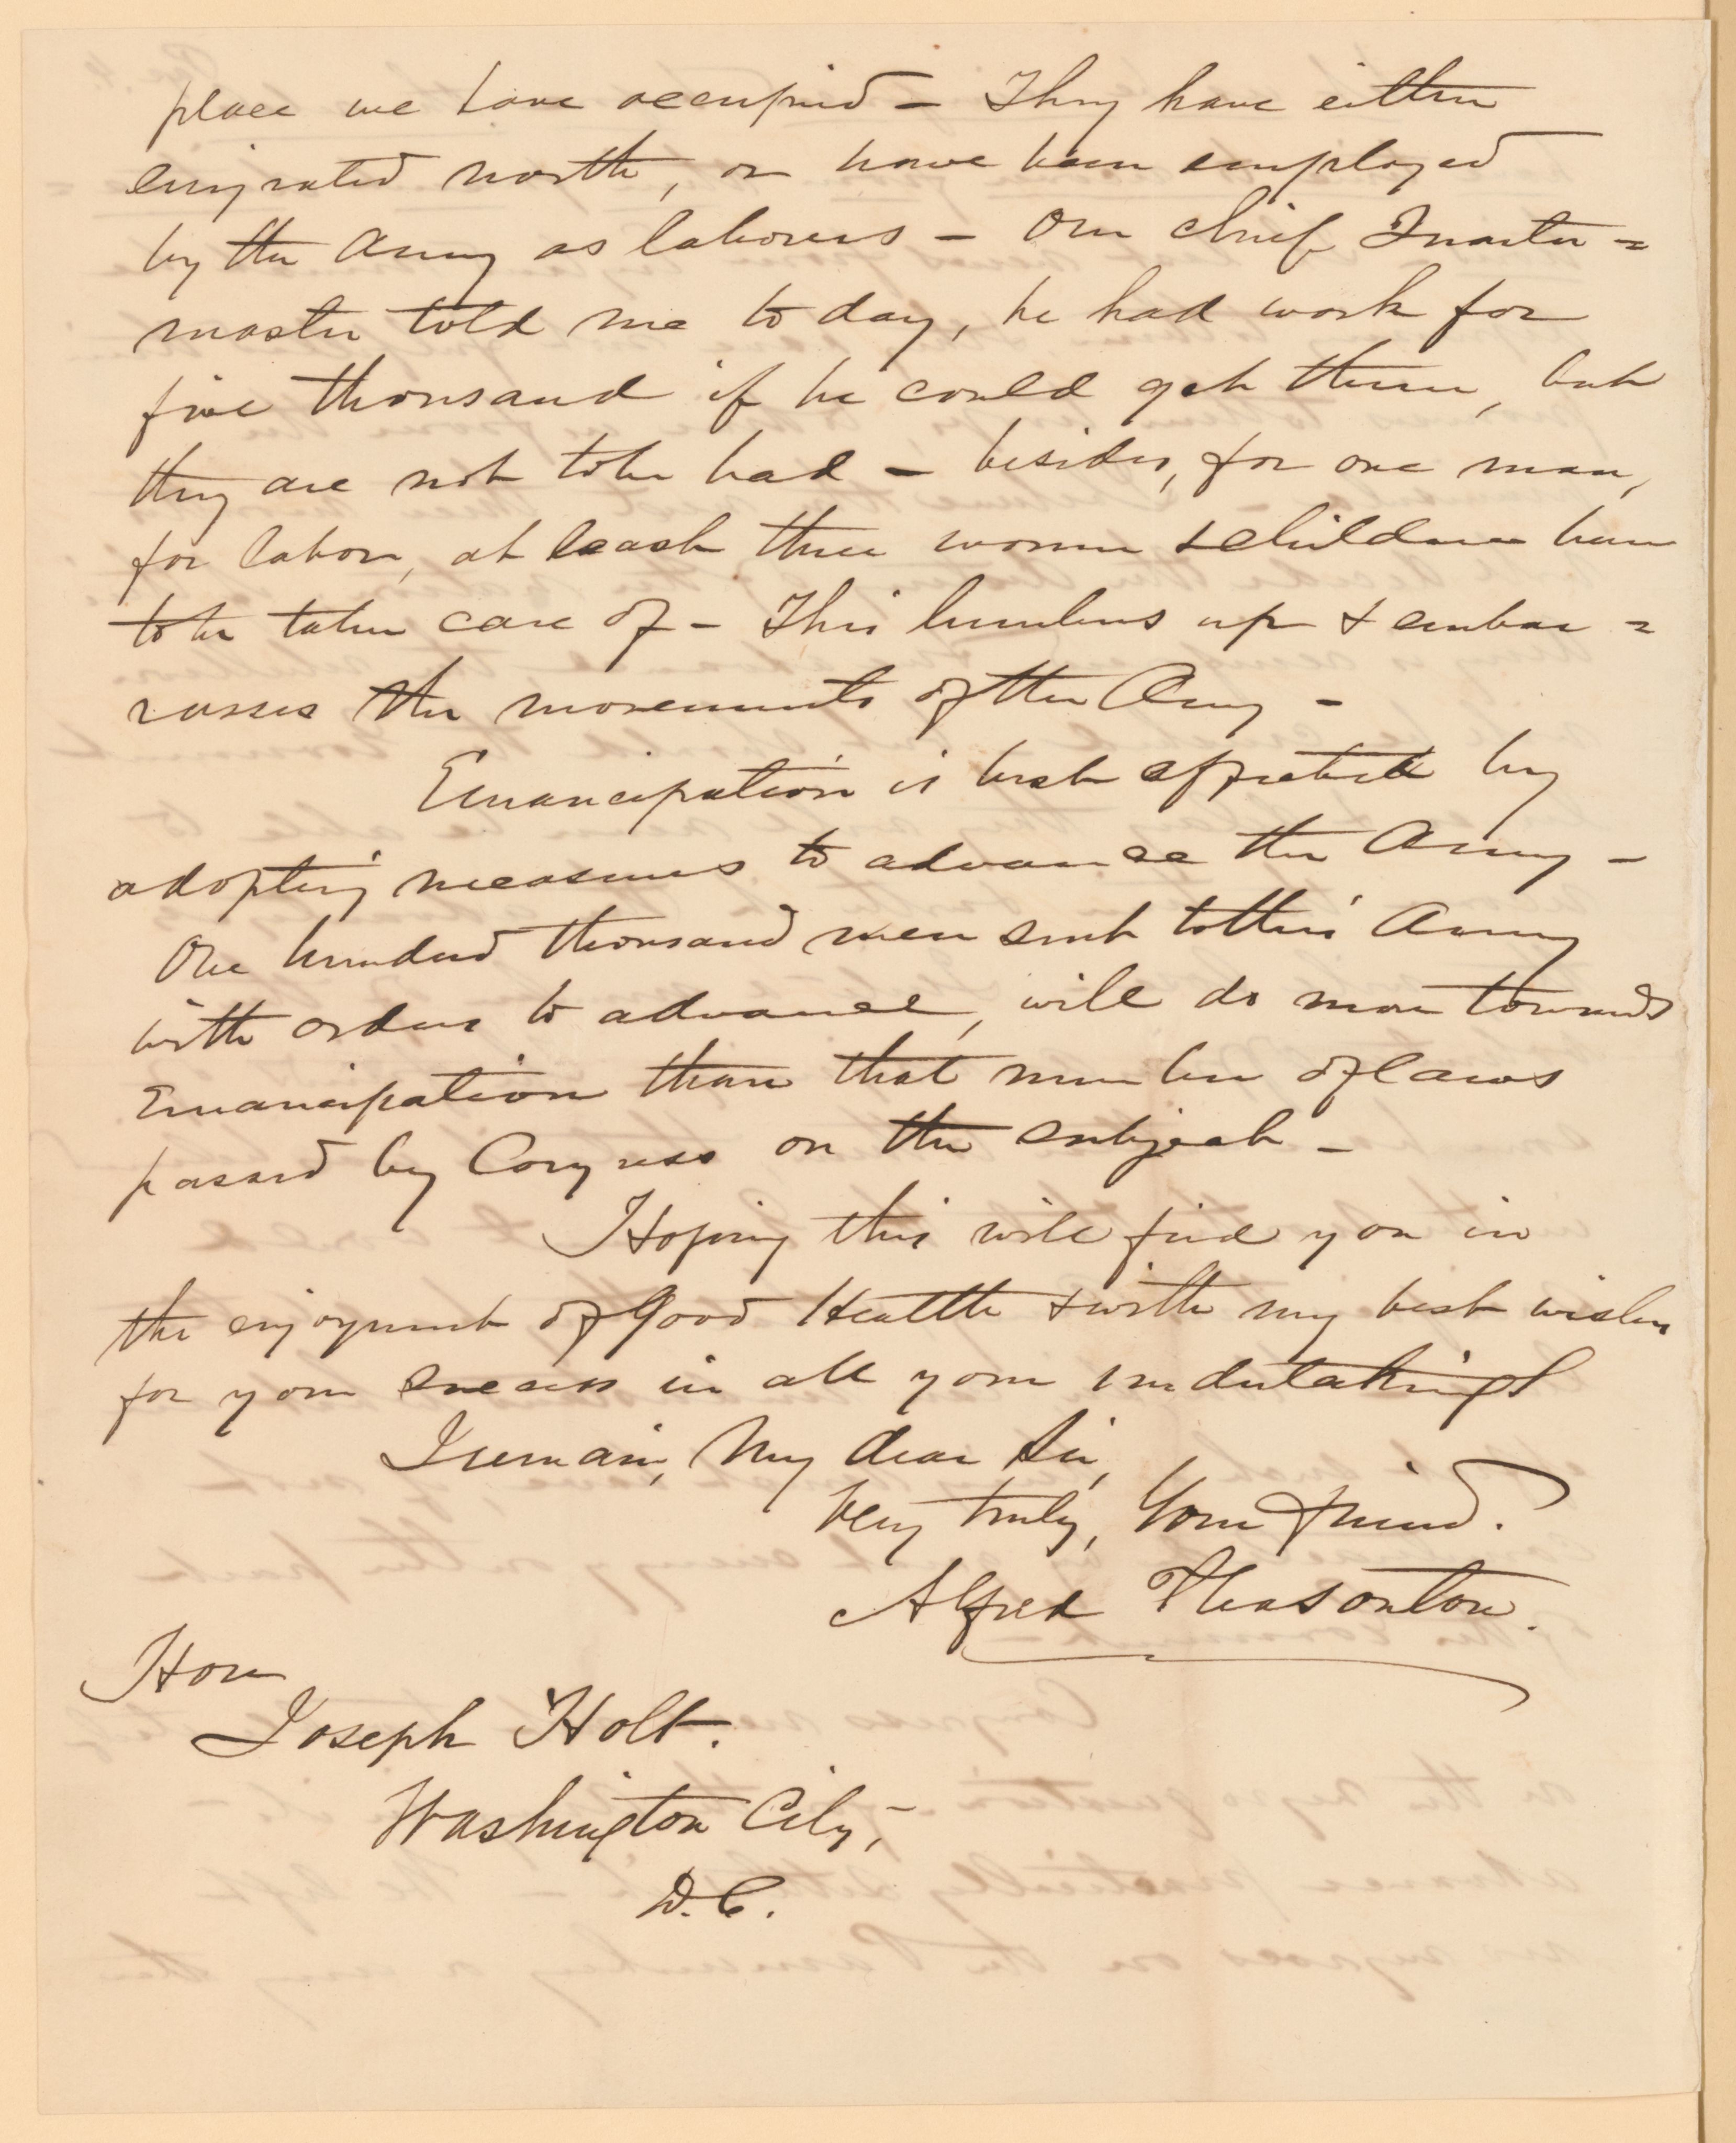 place we have occupied – They have either
emigrated north, or have been employed
by the Army as laborers – Our chief Quarter=
master told me to day, he had work for
five thousand if he could get them, but
they are not to be had – besides, for one man,
for labor, at least three women & children have
to be taken care of – This lumbers up & embar=
rasses the movements of the Army –
Emancipation is best effected by
adopting measures to advance the Army –
One hundred thousand men sent to this Army
with orders to advance, will do more towards
Emancipation than that number of laws
passed by Congress on the subject –
Hoping this will find you in
the enjoyment of good Health & with my best wishes
for your success in all your undertakings
I remain, My dear Sir,
Very truly, Your friend.
Alfred Pleasonton.
Hon
Joseph Holt.
Washington City,
D.C.